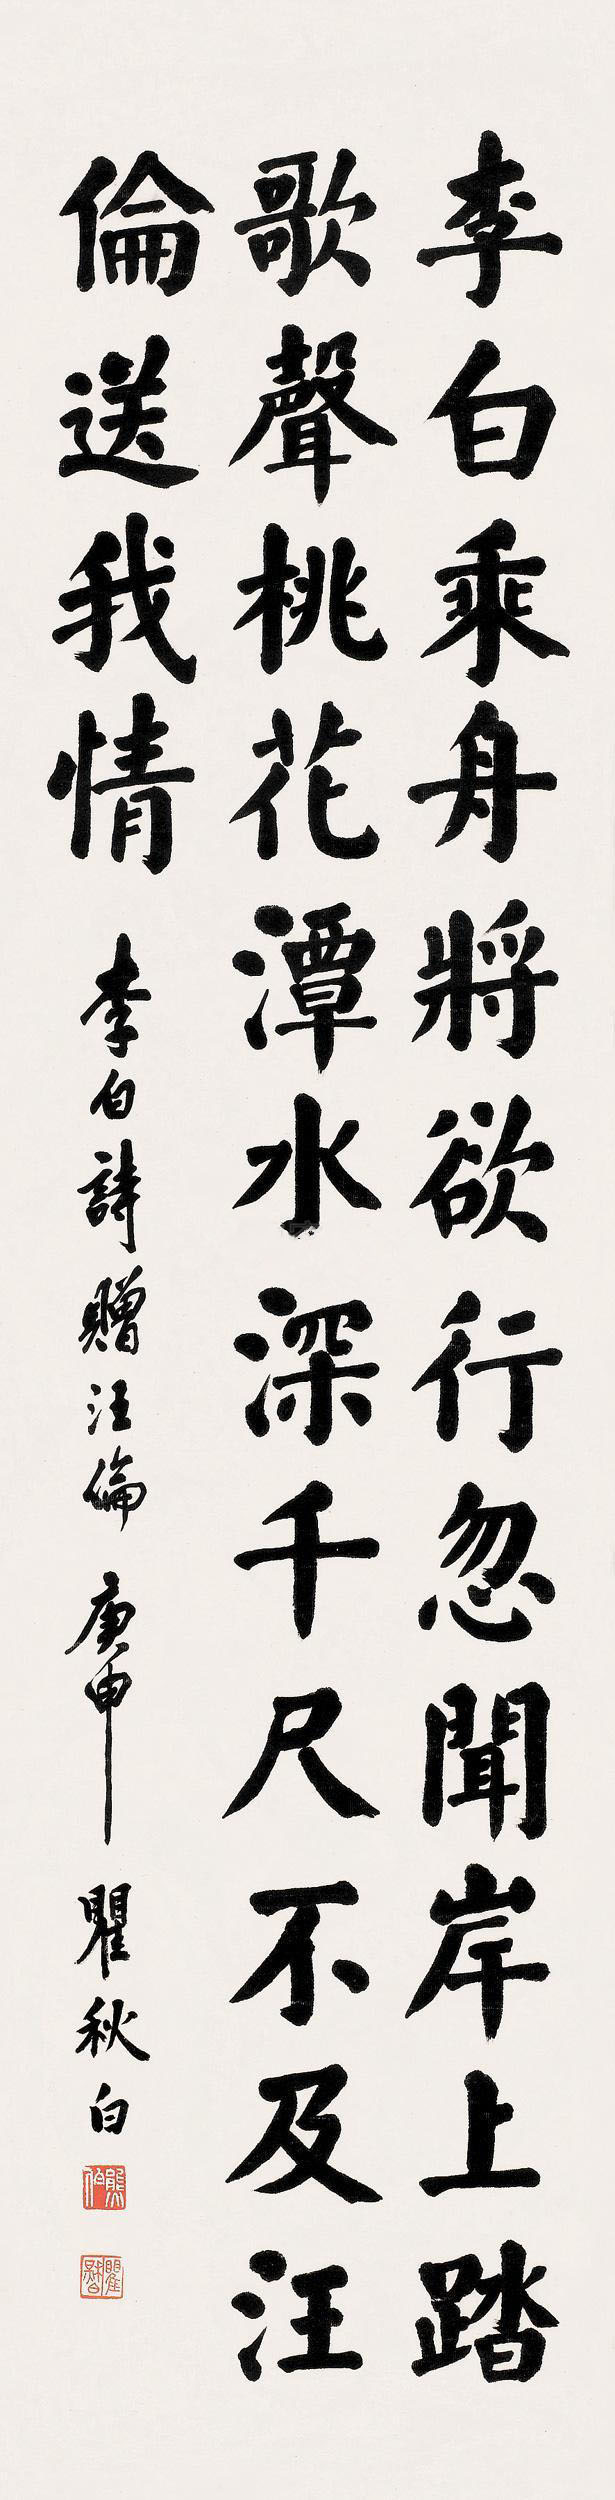 李白乘舟將欲行忽聞岸上踏
歌聲桃花潭水深千尺不及汪
倫送我情
李白詩贈汪倫 庚申 瞿秋白